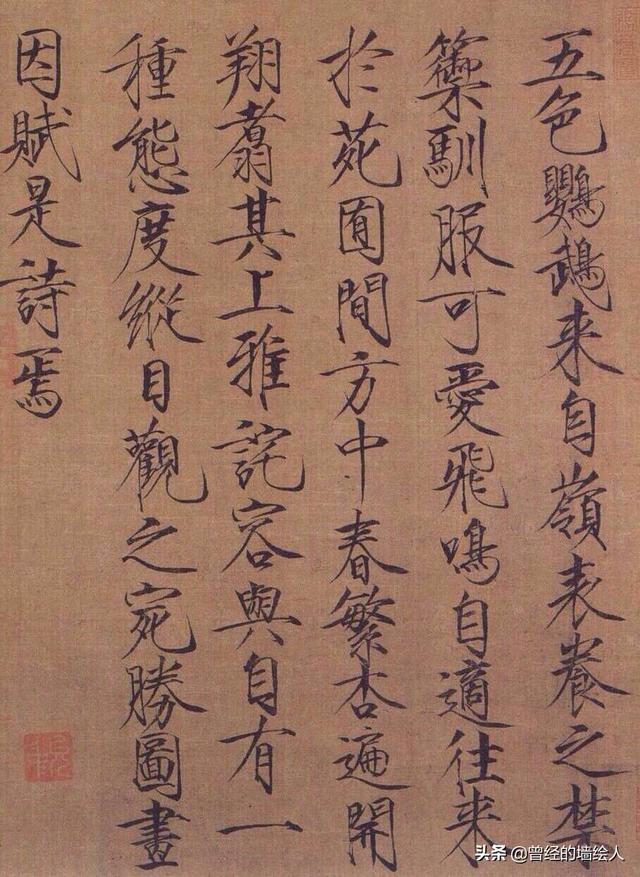 五色鸚鵡来自嶺表養之禁
籞馴服可愛飛鳴自適往来
於苑囿間方中春繁杏遍開
翔翥其上雅詫容與自有一
種態度縱目觀之宛勝圖畫
因賦是詩焉
头条 @曾经的墙绘人